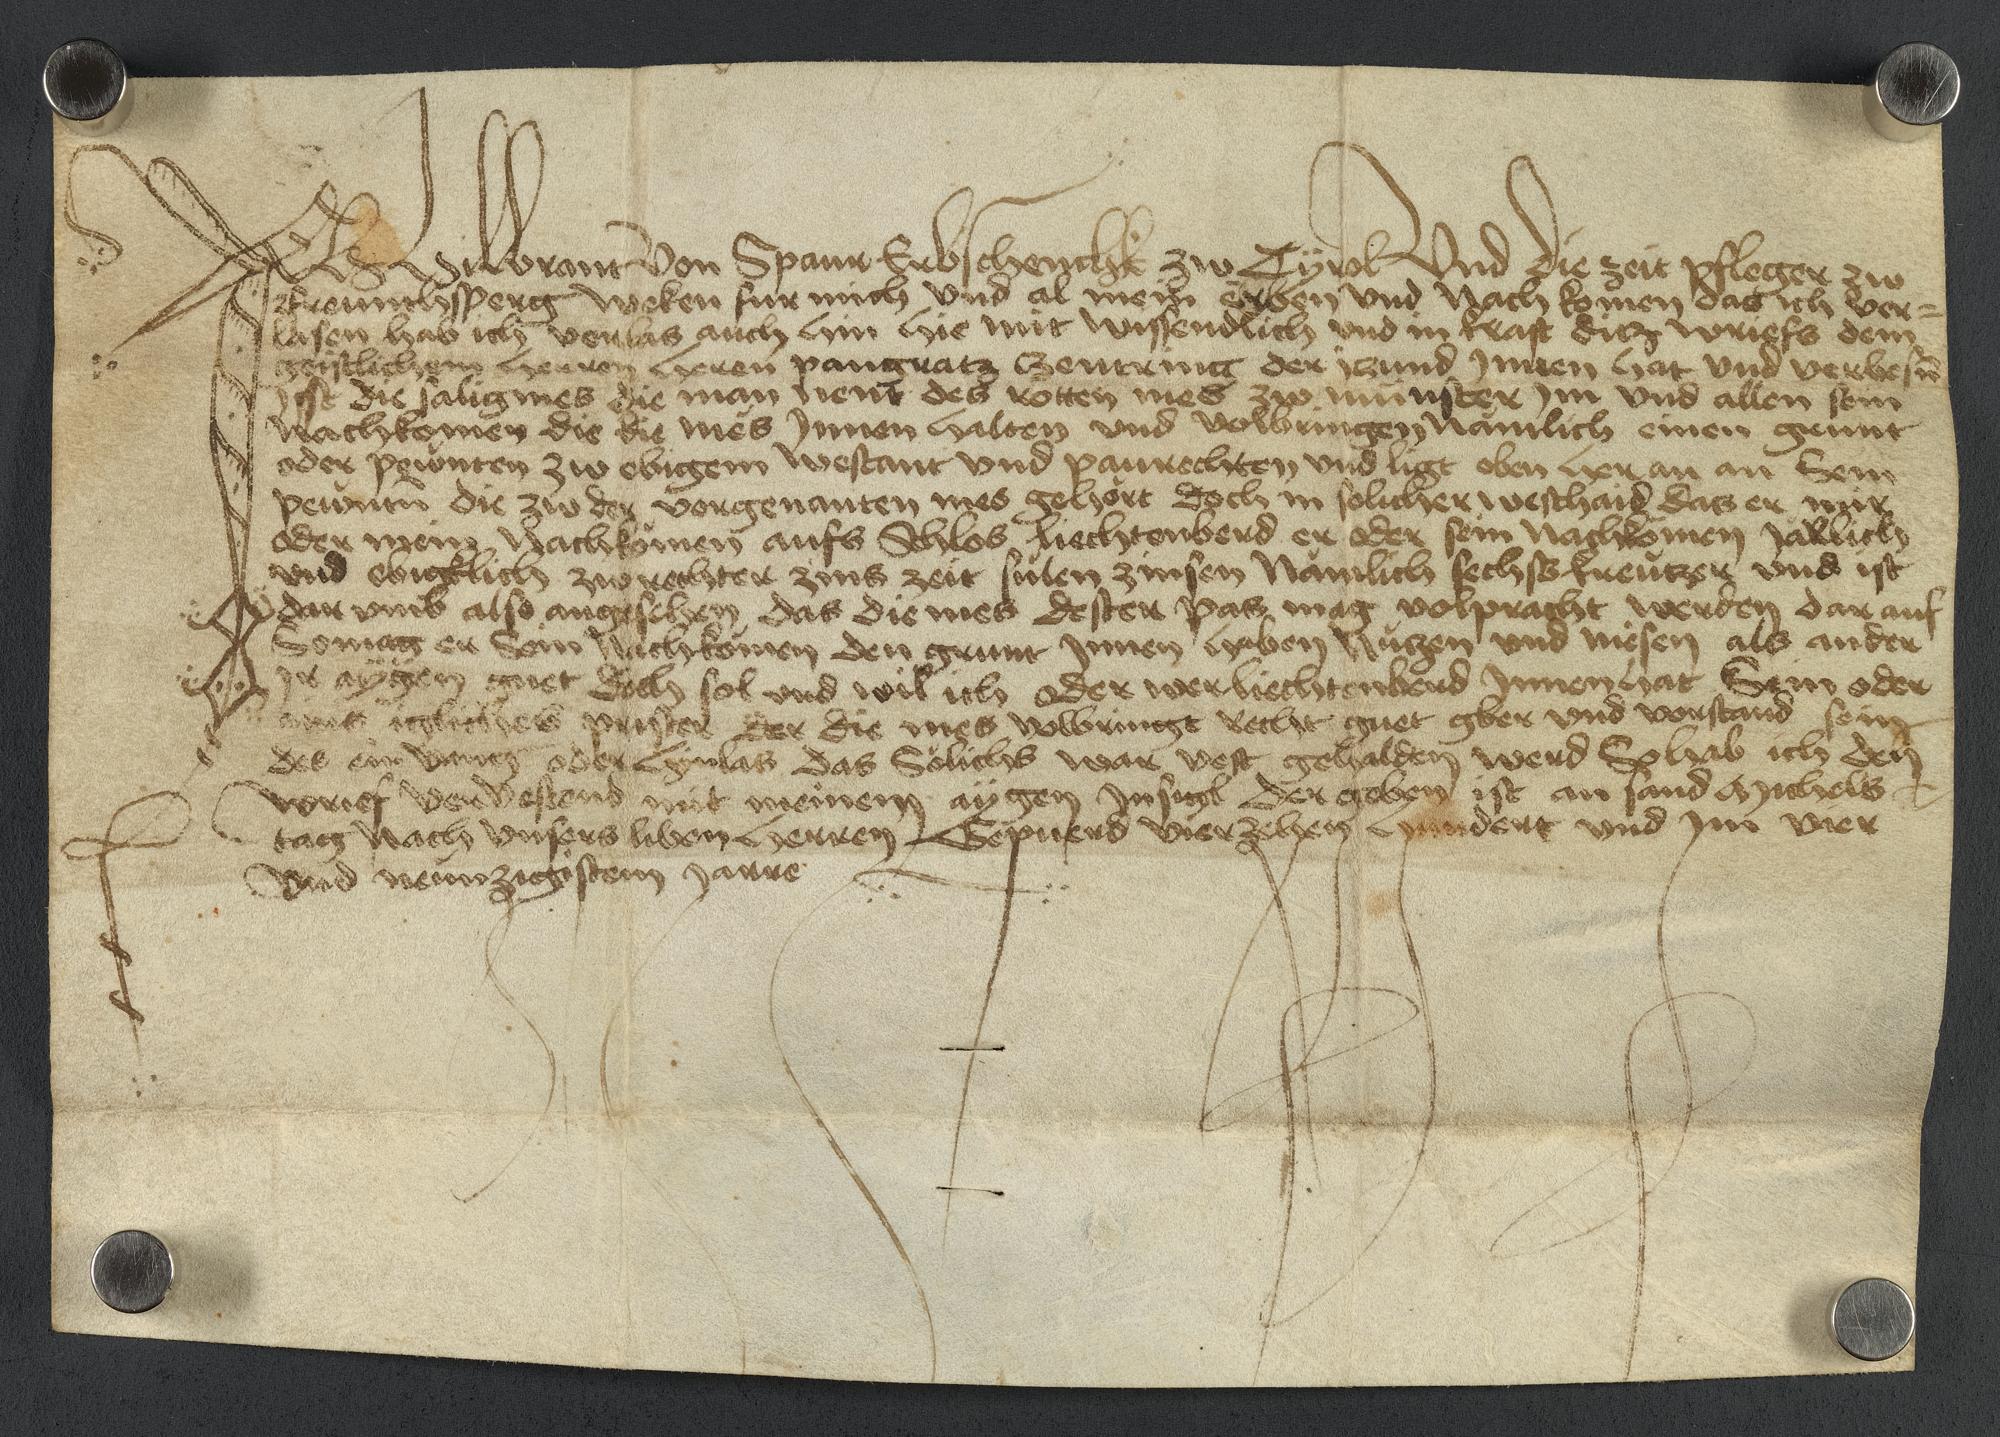 Ich Hilbrant von Spaur Erbschenchk zw Tÿrol Und die zeit pfleger zw
weken fur mich vnd al mein erben vnd Nach komen das ich ver=
lasen hab ich verlas auch hin hie mit wissendlich vnd in kraft ditz wriefs dem
geistlichem herren heren pangratz der yzund Innen hat vnd
yst die saligmes die man nent des rotten mes zw münster Im vnd allen sein
Nachkomen die die mes Innen halten vnd volbringen Nämlich einen grunt
oder pewnten zw ebigem westant vnd paurechten vnd ligt oben her an an Sein
pewntn die zw der vorgenanten mes gehört doch in solicher weschaid das er mir
oder mein Nachkömen aufs Schlos liechtenberd er oder sein nachkömen järlich
vnd ebigklich zw rechter zins zeit sülen zinsen Nämlich sechss kreützer vnd ist
dar vmb also angesehen das die mes dester pas mag volpracht werden dar auf
So mag er Sein Nachkömen den grunt Innen haben Nützen vnd niesen als ander
Ir aÿgen guet doch sol vnd wil ich oder wer liechtenberd Innen hat Sein oder
ains iglichen prister der die mes volbringt recht guet gber vnd vorstand sein
des ein vang oder hinlas das Sölichs war vest gehalden werd So hab ich den
wrief ver vestend mit meinem aÿgen Insigl Der geben ist an sand Michels
tag Nach vnsers liben herren Gepuerd vierzehen Hundert vnd Im vier
Vnd neinzigistem Jarre